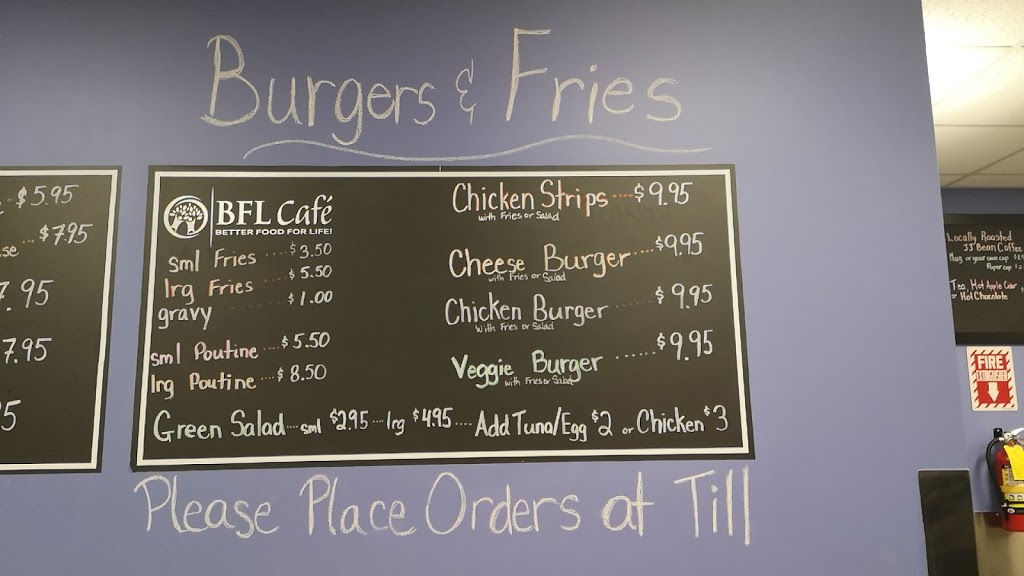 Burgers & Fries
$5.95
$7.95
se
7.95
7.95
5
BFL Café
BETTER FOOD FOR LIFE!
sml Fries $3.50
lrg Fries $5.50
gravy $1.00
sml Poutine $5.50
lrg Poutine $8.50
Chicken Strips $9.95
with Fries or Salad
Cheese Burger $9.95
with Fries or Salad
Chicken Burger $9.95
With Fries or Salad
Veggie Burger $9.95
with Fries or Salad
Green Salad sml $2.95 lrg $4.95 Add Tuna/Egg $2 or Chicken $3
Please Place Orders at Till
Locally Roasted
JJ Bean Coffee
Mug or your own cup
Paper cup
Tea, Hot Apple Cider
or Hot Chocolate
FIRE
EXTINGUISHER